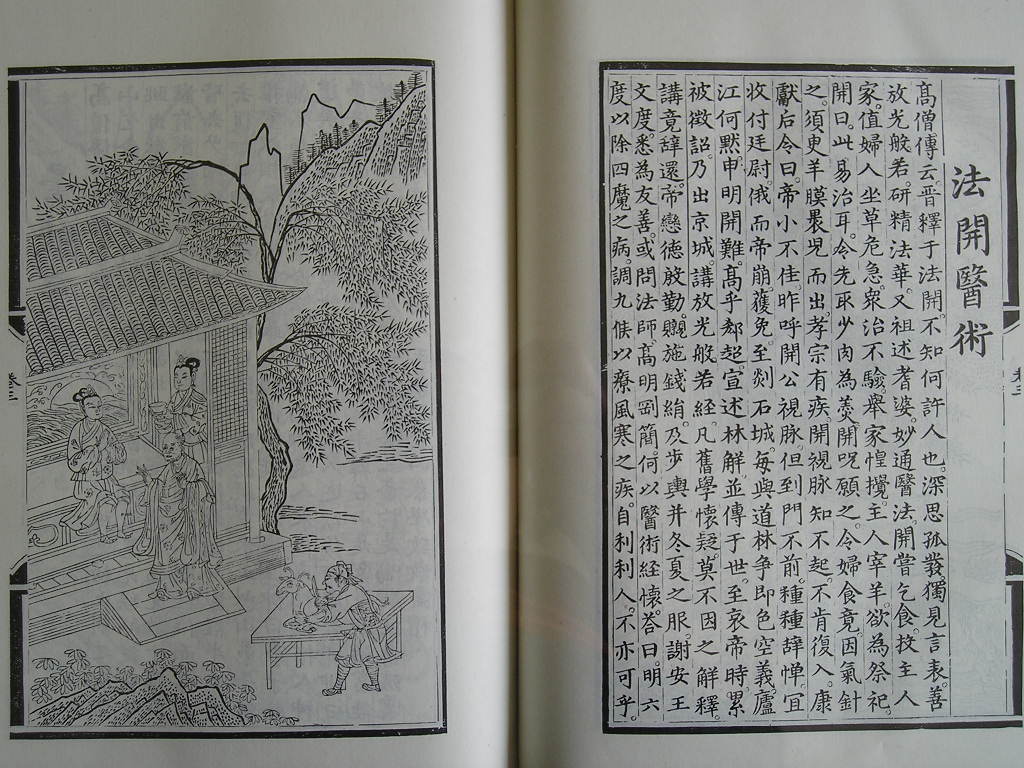 法開醫術
高僧傳云。晉釋于法開。不知何許人也。深思孤發。獨見言表。善
放光般若。研精法華。又祖述耆婆。妙通醫法。開嘗乞食。投主人
家。值婦人坐草危急。眾治不驗。舉家惶擾。主人宰羊。欲為祭祀。
開曰。此易治耳。令先取少肉為羹。開呪願之。令婦食竟。因氣針
之。須臾羊膜裹兒而出。孝宗有疾。開視脉知不起。不肯復入。康
獻后令曰。帝小不佳。昨呼開公視脉。但到門不前。種種辭憚。宜
收付廷尉。俄而帝崩。獲免。至剡石城。每與道林爭即色空義。廬
江何默。申明開難。高平郗超。宣述林解。並傳于世。至哀帝時。累
被徵詔。乃出京城。講放光般若經。凡舊學懷疑。莫不因之解釋。
講竟辭還。帝戀德殷勤。贈施錢絹。及步輿并冬夏之服。謝安王
文度。悉為友善。或問法師。高明剛簡。何以醫術經懷。荅曰。明六
度以除四魔之病。調九候以療風寒之疾。自利利人。不亦可乎。
卷三